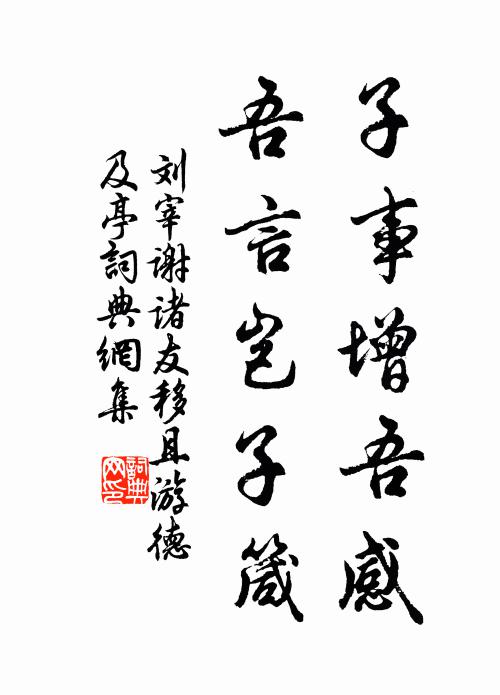 子事增吾感
吾言岂子箴
刘宰谢诸友移具游德
及亭詞典網集
詞典
网印